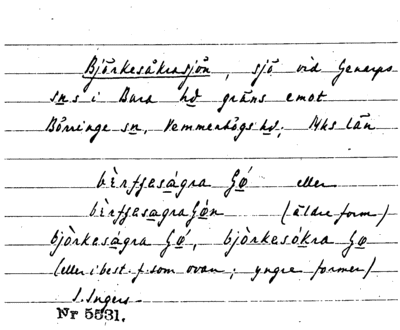 Björkesåkrasjön, sjö vid Genarps
sns i Bara hd gräns emot
Börringe sn, Vemmenhögs hd; Mhs län
bèrfgeságra ʃǿ eller
bèrfgesagraʃǿn (äldre form)
bjòrkeságra ʃǿ, bjòrkesókra ʃǿ
(eller i best. f. som ovan; yngre former)
I. Ingers
Nr 5531.